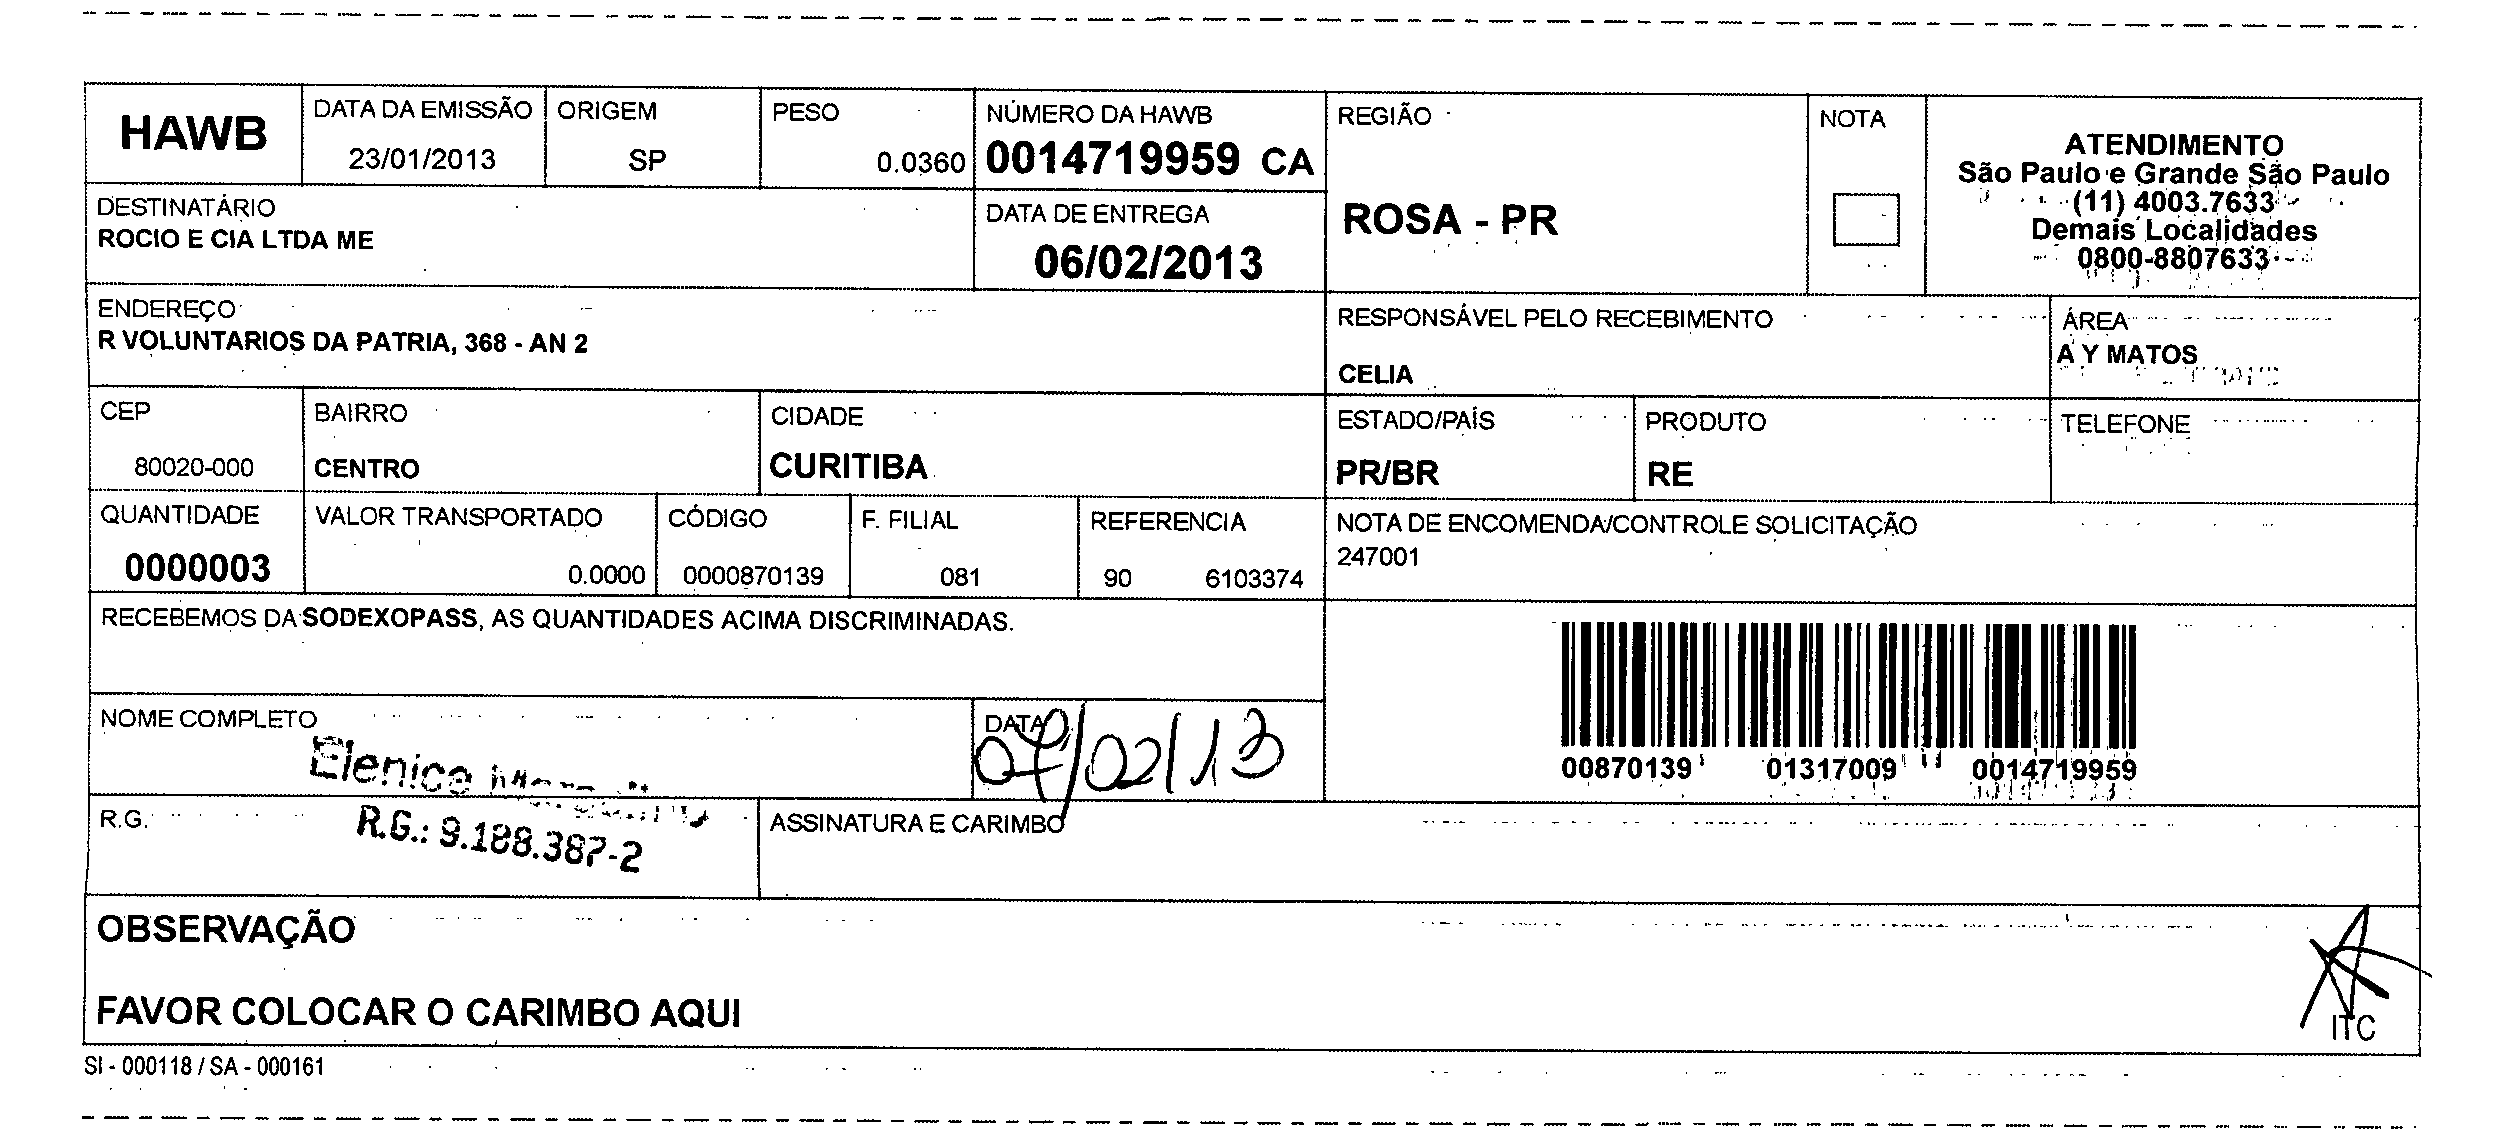 HAWB
DATA DA EMISSÃO
23/01/2013
ORIGEM
SP
PESO
0.0360
NÚMERO DA HAWB
0014719959 CA
REGIÃO
ROSA - PR
NOTA
ATENDIMENTO
São Paulo e Grande São Paulo
(11) 4003.7633
Demais Localidades
0800-8807633
DESTINATÁRIO
ROCIO E CIA LTDA ME
DATA DE ENTREGA
06/02/2013
ENDEREÇO
R VOLUNTARIOS DA PATRIA, 368 - AN 2
RESPONSÁVEL PELO RECEBIMENTO
CELIA
ÁREA
A Y MATOS
CEP
80020-000
BAIRRO
CENTRO
CIDADE
CURITIBA
ESTADO/PAÍS
PR/BR
PRODUTO
RE
TELEFONE
QUANTIDADE
0000003
VALOR TRANSPORTADO
0.0000
CÓDIGO
0000870139
F. FILIAL
081
REFERENCIA
90 6103374
NOTA DE ENCOMENDA/CONTROLE SOLICITAÇÃO
247001
RECEBEMOS DA SODEXOPASS, AS QUANTIDADES ACIMA DISCRIMINADAS.
00870139 01317009 0014719959
NOME COMPLETO
Elenice
DATA
07/02/13
R.G.
R.G.: 9.188.387-2
ASSINATURA E CARIMBO
OBSERVAÇÃO
FAVOR COLOCAR O CARIMBO AQUI
ITC
SI - 000118 / SA - 000161